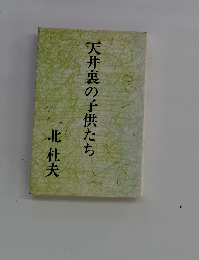 天井裏の子供たち
北杜夫